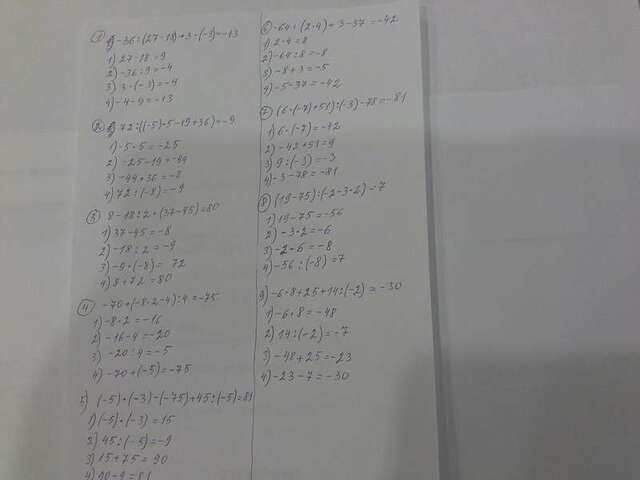 ① -36:(27-18)+3·(-3)=-13
1) 27-18=9
2) -36:9=-4
3) 3·(-3)=-9
4) -4-9=-13
② 72:((-5)·5-19+36)=-9
1) -5·5=-25
2) -25-19=-44
3) -44+36=-8
4) 72:(-8)=-9
③ 8-18:2·(37-45)=80
1) 37-45=-8
2) -18:2=-9
3) -9·(-8)=72
4) 8+72=80
④ -70+(-8·2-4):4=-75
1) -8·2=-16
2) -16-4=-20
3) -20:4=-5
4) -70+(-5)=-75
5) (-5)·(-3)-(-75)+45:(-5)=81
1) (-5)·(-3)=15
2) 45:(-5)=-9
3) 15+75=90
4) 90-9=81
⑥ -64:(2·4)+3-37=-42
1) 2·4=8
2) -64:8=-8
3) -8+3=-5
4) -5-37=-42
⑦ (6·(-7)+51):(-3)-78=-81
1) 6·(-7)=-42
2) -42+51=9
3) 9:(-3)=-3
4) -3-78=-81
⑧ (19-75):(-2-3·2)=7
1) 19-75=-56
2) -3·2=-6
3) -2-6=-8
4) -56:(-8)=7
9) -6·8+25+14:(-2)=-30
1) -6·8=-48
2) 14:(-2)=-7
3) -48+25=-23
4) -23-7=-30